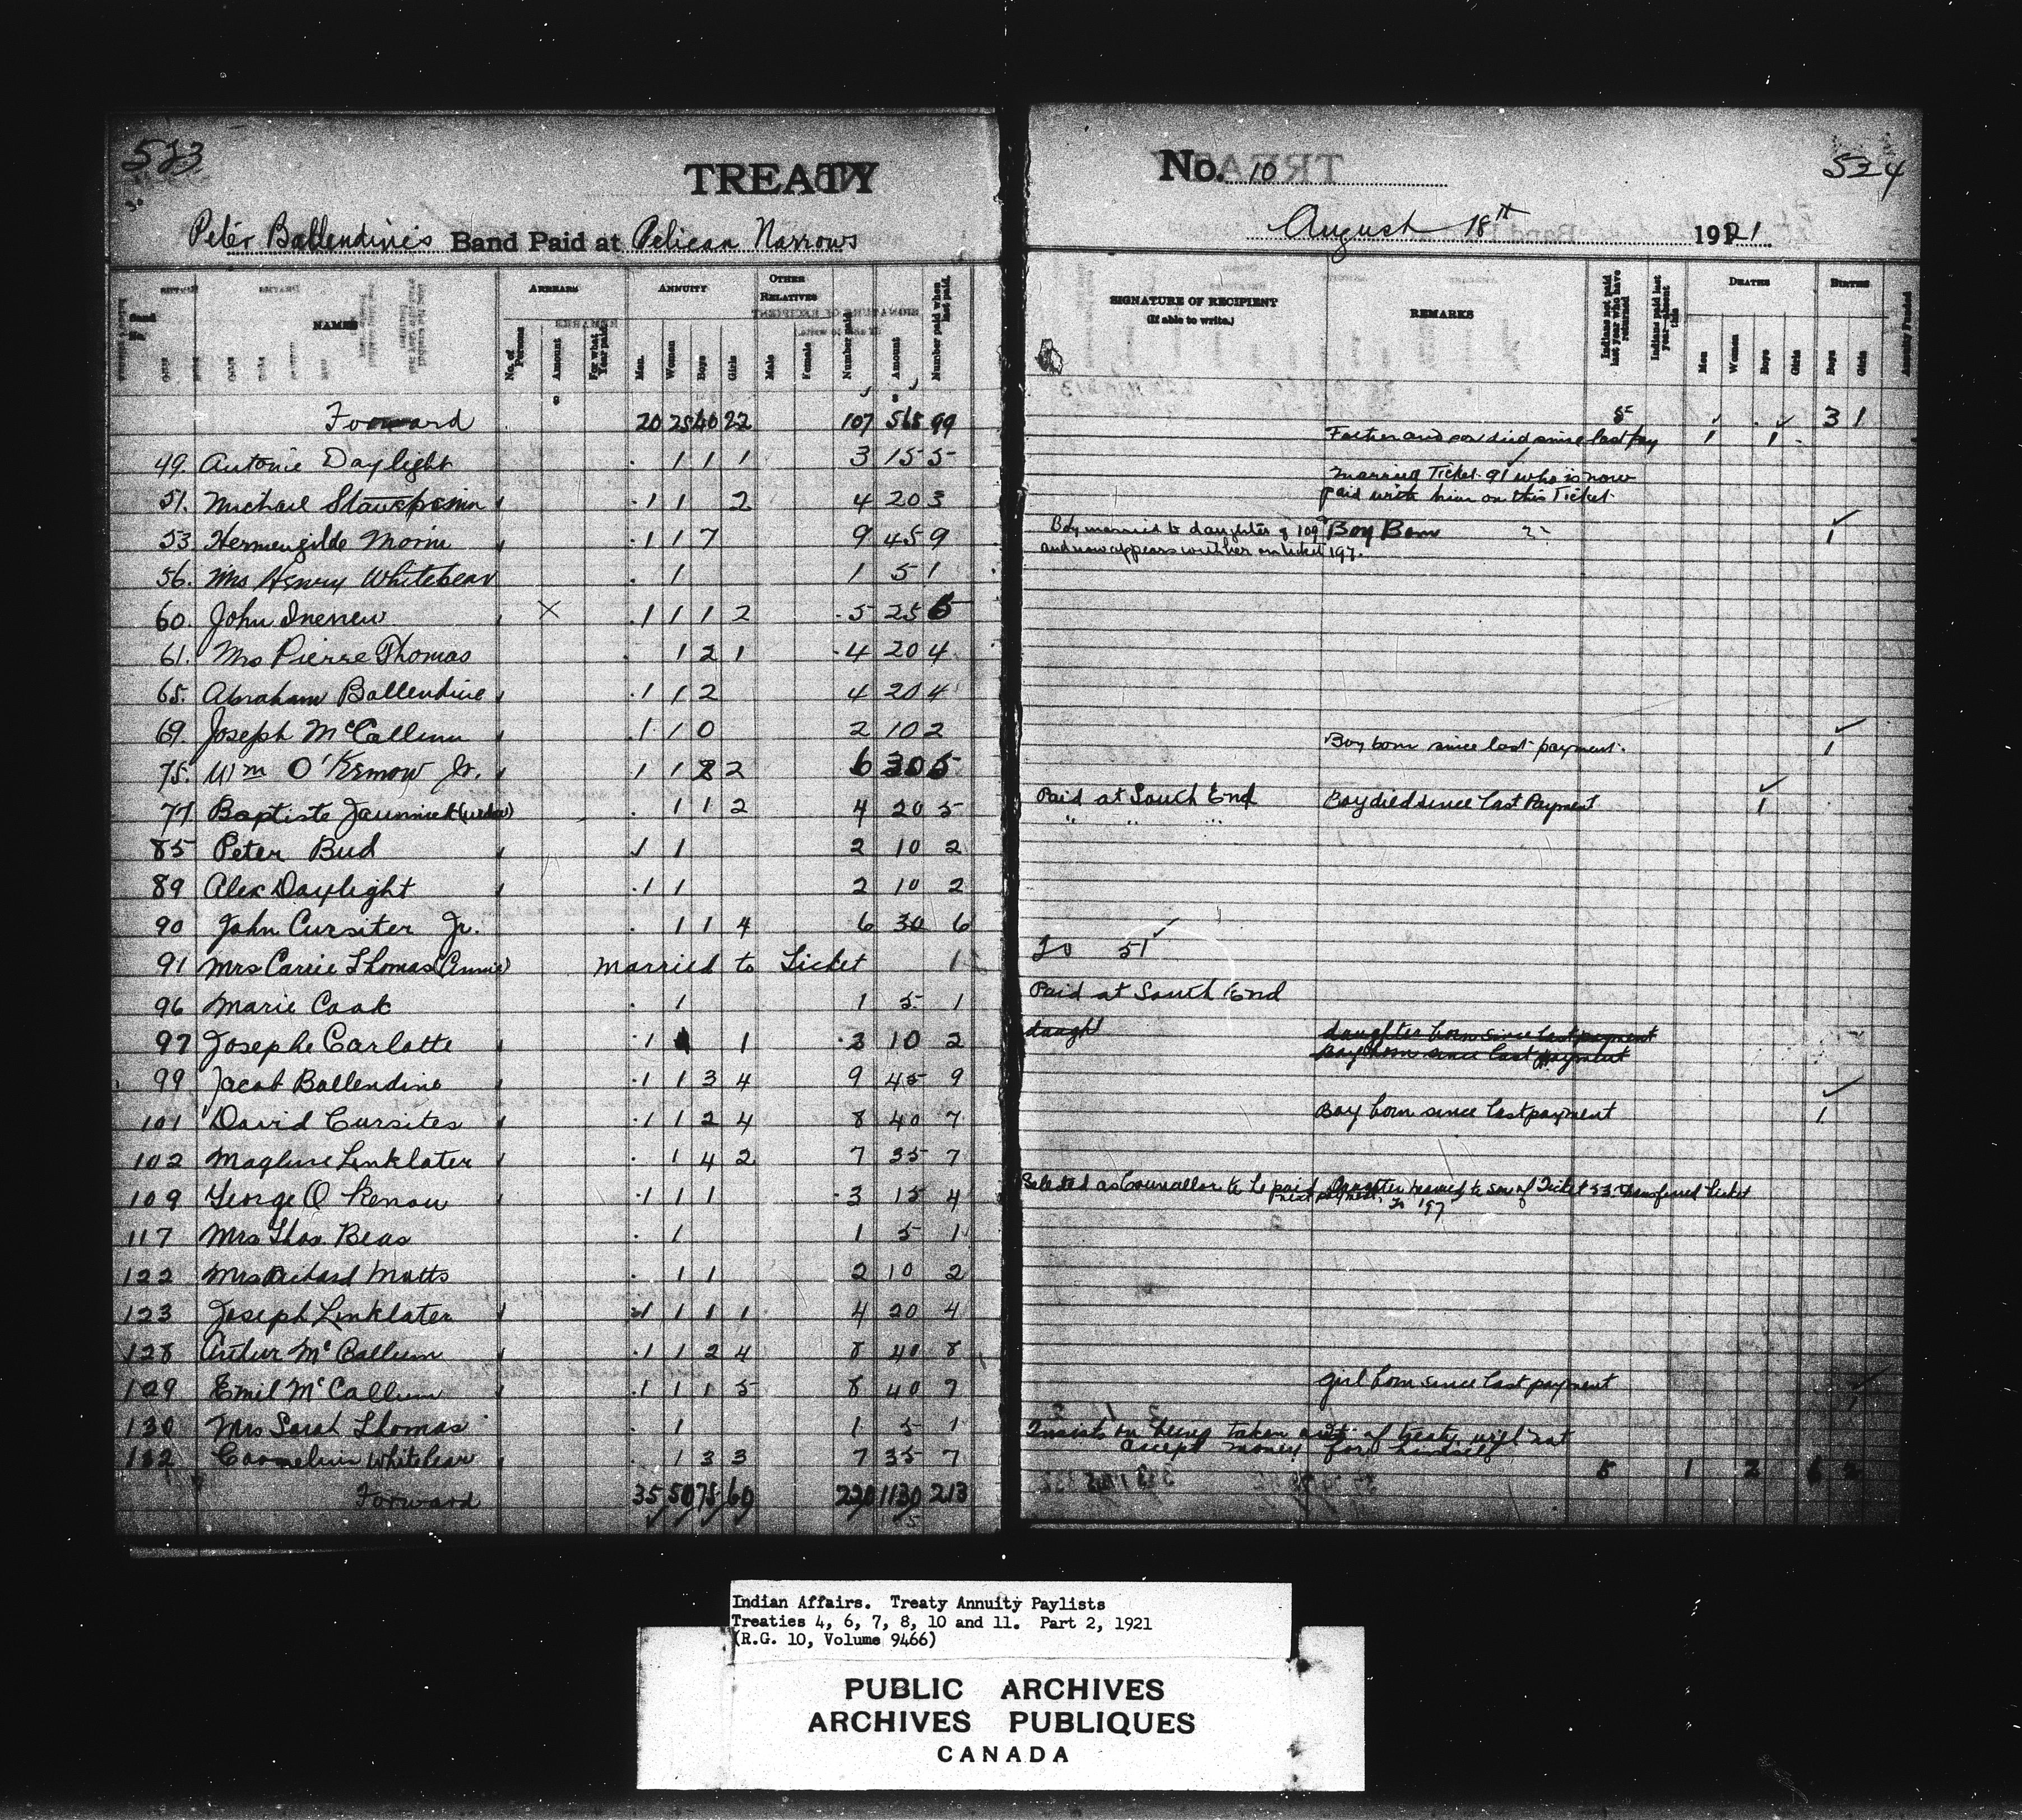 523
TREATY
Peter Ballendine's Band Paid at Pelican Narrows
No. 10
524
August 18th 1921
NAMES
ARREARS
ANNUITY
OTHER RELATIVES
No. of Persons
Amount
For what Year paid
Men.
Women
Boys
Girls
Male
Female
Number paid
Amount
Number paid when last paid.
SIGNATURE OF RECIPIENT
(If able to write.)
REMARKS
Indians not paid last year who have returned
Indians paid last year—absent this
DEATHS
BIRTHS
Men
Women
Boys
Girls
Boys
Girls
Annuity Funded
Forward 20 25 40 22 107 565 99 5 3 1
49. Antonie Daylight 1 1 1 3 15 5 Father and son died since last pay 1 1
51. Michael 1 1 2 4 20 3 Married Ticket 91 who is now
paid with him on this Ticket
53 Hermengilde Morin 1 1 7 9 45 9 Boy married to daughter of 109 Boy Born 1
and now appears with her on ticket 197.
56. Mrs Henry Whitebear 1 1 5 1
60. John Inenew × 1 1 1 2 5 25 5
61. Mrs Pierre Thomas 1 2 1 4 20 4
65. Abraham Ballendine 1 1 2 4 20 4
69. Joseph McCallum 1 1 0 2 10 2
75. Wm O'Kemow Jr. 1 1 2 2 6 30 5 Boy born since last payment. 1
77 Baptiste (widow) 1 1 2 4 20 5 Paid at South End Boy died since last Payment 1
85 Peter Bud 1 1 2 10 2 " " "
89 Alex Daylight 1 1 2 10 2
90 John Cursiter Jr. 1 1 4 6 30 6
91 Mrs Carrie Thomas (Annie) Married to Ticket 1 To 51
96 Marie Cook 1 1 5 1 Paid at South End
97 Josephe Carlotte 1 1 10 2 daught daughter born since last payment
boy born since last payment
99 Jacob Ballendine 1 1 3 4 9 45 9
101 David Cursiter 1 1 2 4 8 40 7 Boy born since last payment 1
102 Maglire Linklater 1 4 2 7 35 7
109 George O Kenow 1 1 1 3 15 4 Selected as Councellor to be paid next payment. Daughter married to son of Ticket 53 transferred ticket
To 197
117 Mrs Thos. Bear 1 1 5 1
122 Mrs Richard Matts 1 1 2 10 2
123 Joseph Linklater 1 1 1 1 4 20 4
128 Arthur McCallum 1 1 2 4 8 40 8
129 Emil McCallum 1 1 1 5 8 40 7 Girl born since last payment 1
130 Mrs Sarah Thomas 1 1 5 1
132 Cornelius Whitebear 1 3 3 7 35 7 Insists on being taken out of treaty will not
accept money for himself
Forward 35 50 75 60 220 1130 213 5 1 2 6 2
Indian Affairs. Treaty Annuity Paylists
Treaties 4, 6, 7, 8, 10 and 11. Part 2, 1921
(R.G. 10, Volume 9466)
PUBLIC ARCHIVES
ARCHIVES PUBLIQUES
CANADA